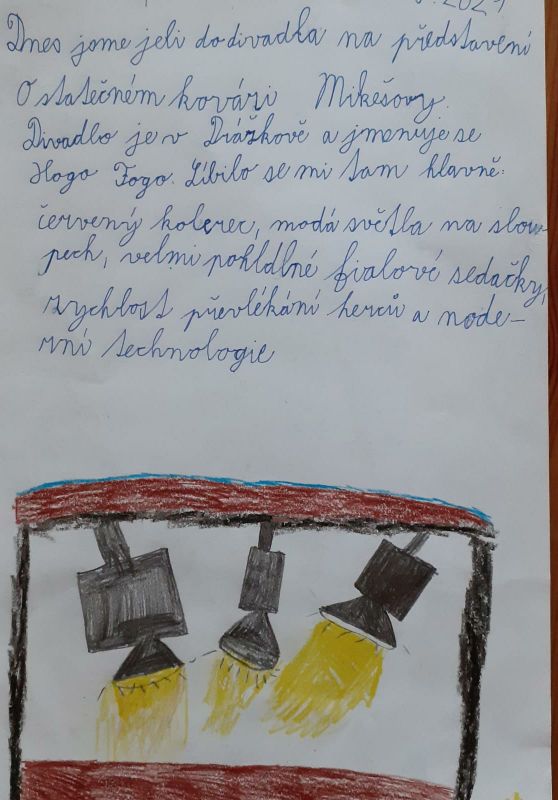 2021
Dnes jsme jeli do divadla na představení
O statečném kováři Mikešovy.
Divadlo je v a jmenuje se
Hogo Fogo. Líbilo se mi tam hlavně:
červený koberec, modá světla na slou-
pech, velmi pohldlné fialové sedačky,
rychlost převlékání herců a mode-
rní technologie